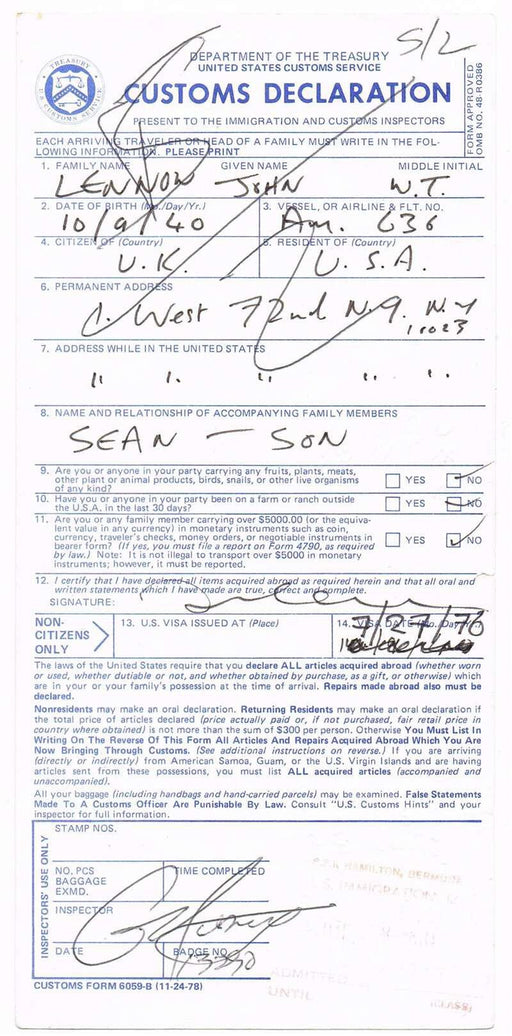 5/2
DEPARTMENT OF THE TREASURY
UNITED STATES CUSTOMS SERVICE
CUSTOMS DECLARATION
PRESENT TO THE IMMIGRATION AND CUSTOMS INSPECTORS
FORM APPROVED
OMB NO. 48-R0386
TREASURY
U.S. CUSTOMS SERVICE
EACH ARRIVING TRAVELER OR HEAD OF A FAMILY MUST WRITE IN THE FOL-
LOWING INFORMATION. PLEASE PRINT
1. FAMILY NAME GIVEN NAME MIDDLE INITIAL
LENNON JOHN W.T.
2. DATE OF BIRTH (Mo./Day/Yr.) 3. VESSEL, OR AIRLINE & FLT. NO.
10/9/40 Am. 636
4. CITIZEN OF (Country) 5. RESIDENT OF (Country)
U.K. U.S.A.
6. PERMANENT ADDRESS
1. West 72nd N.Y. N.Y
10023
7. ADDRESS WHILE IN THE UNITED STATES
" " " " "
8. NAME AND RELATIONSHIP OF ACCOMPANYING FAMILY MEMBERS
SEAN - SON
9. Are you or anyone in your party carrying any fruits, plants, meats,
other plant or animal products, birds, snails, or other live organisms
of any kind? YES NO
10. Have you or anyone in your party been on a farm or ranch outside
the U.S.A. in the last 30 days? YES NO
11. Are you or any family member carrying over $5000.00 (or the equiva-
lent value in any currency) in monetary instruments such as coin,
currency, traveler's checks, money orders, or negotiable instruments in
bearer form? (If yes, you must file a report on Form 4790, as required
by law.) Note: It is not illegal to transport over $5000 in monetary
instruments; however, it must be reported. YES NO
12. I certify that I have declared all items acquired abroad as required herein and that all oral and
written statements which I have made are true, correct and complete.
SIGNATURE:
NON-
CITIZENS
ONLY
13. U.S. VISA ISSUED AT (Place) 14. VISA DATE (Mo./Day/Yr.)
7/27/76
The laws of the United States require that you declare ALL articles acquired abroad (whether worn
or used, whether dutiable or not, and whether obtained by purchase, as a gift, or otherwise) which
are in your or your family's possession at the time of arrival. Repairs made abroad also must be
declared.
Nonresidents may make an oral declaration. Returning Residents may make an oral declaration if
the total price of articles declared (price actually paid or, if not purchased, fair retail price in
country where obtained) is not more than the sum of $300 per person. Otherwise You Must List In
Writing On The Reverse Of This Form All Articles And Repairs Acquired Abroad Which You Are
Now Bringing Through Customs. (See additional instructions on reverse.) If you are arriving
(directly or indirectly) from American Samoa, Guam, or the U.S. Virgin Islands and are having
articles sent from these possessions, you must list ALL acquired articles (accompanied and
unaccompanied).
All your baggage (including handbags and hand-carried parcels) may be examined. False Statements
Made To A Customs Officer Are Punishable By Law. Consult "U.S. Customs Hints" and your
inspector for full information.
INSPECTORS' USE ONLY
STAMP NOS.
NO. PCS
BAGGAGE
EXMD.
TIME COMPLETED
INSPECTOR
DATE
BADGE NO.
13390
HAMILTON, BERMUDA
U.S. IMMIGRATION
ADMITTED
UNTIL
(CLASS)
CUSTOMS FORM 6059-B (11-24-78)